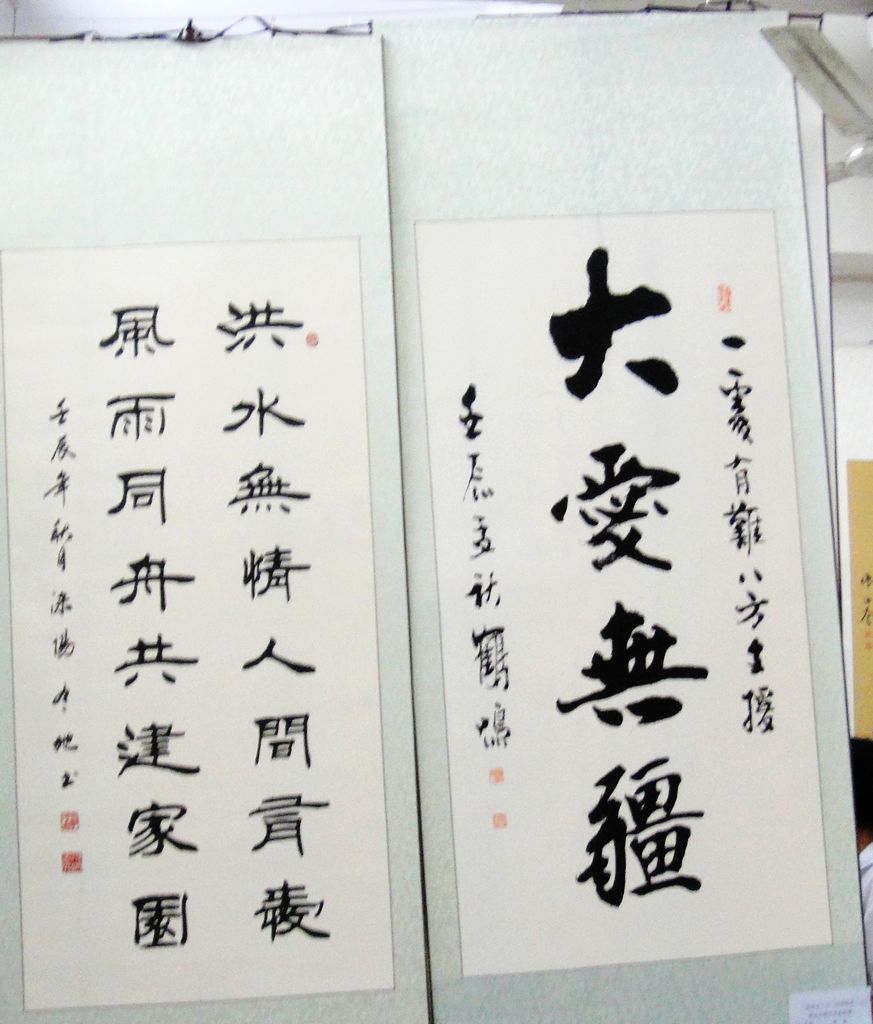 一處有難八方支援
大愛無疆
壬辰孟秋鶴鳴
洪水無情人間有愛
風雨同舟共建家園
壬辰年秋月溧陽
書